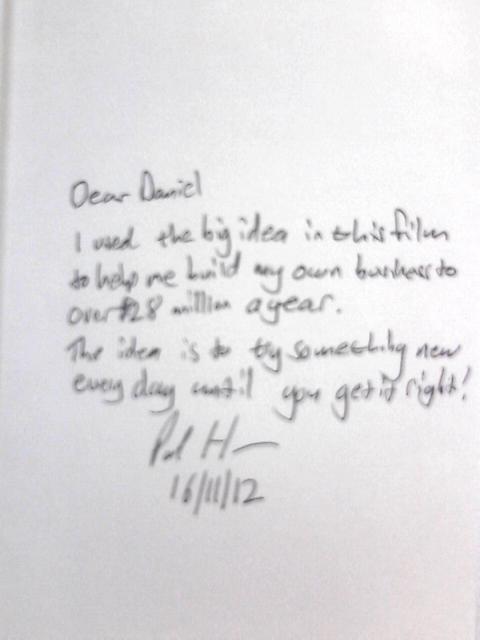 Dear Daniel
I used the big idea in this film
to help me build my own business to
over $28 million a year.
The idea is to try something new
every day until you get it right!
16/11/12